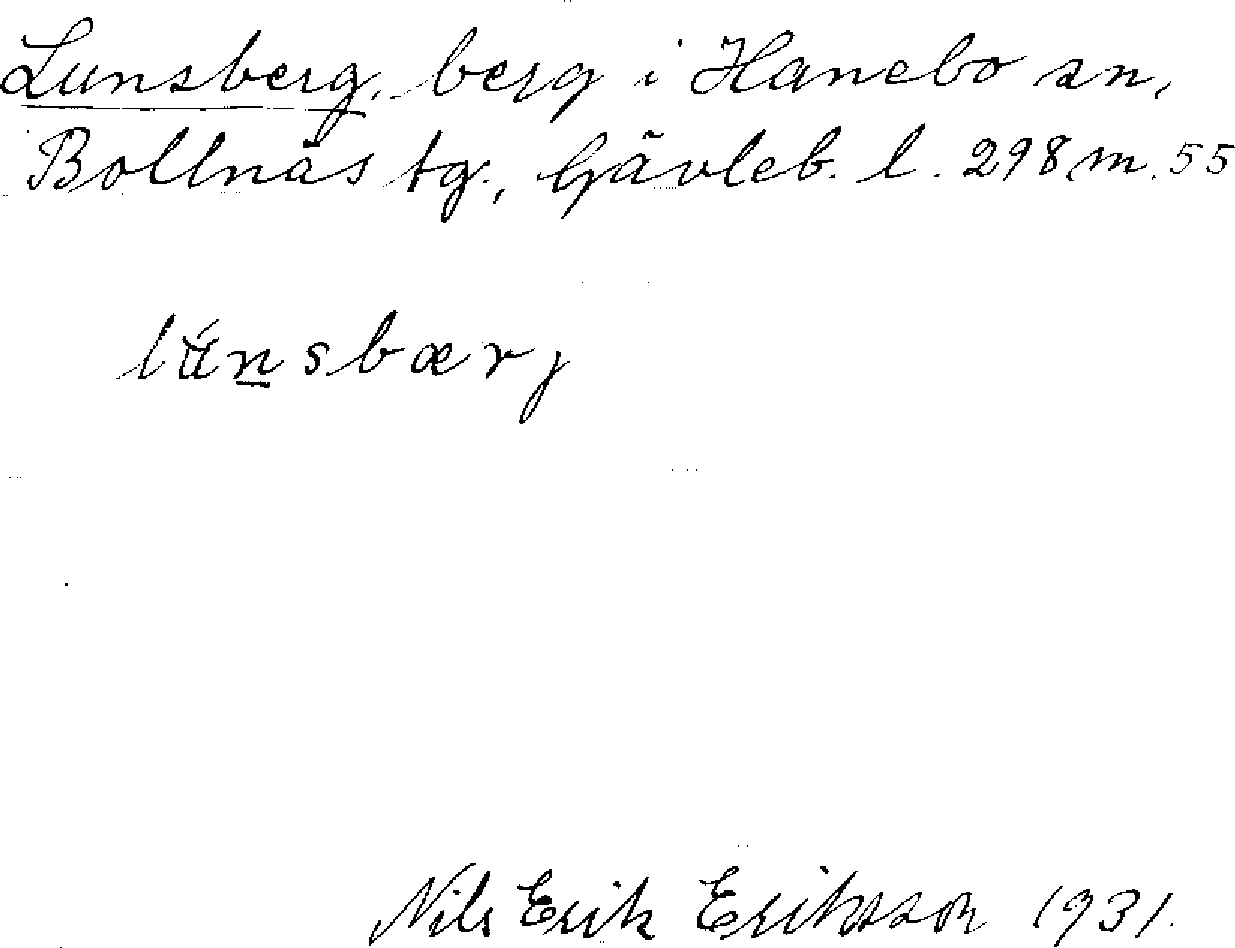 Lunsberg, berg i Hanebo sn,
Bollnäs tg., Gävleb. l. 298 m. 55
lǘn̲sbærj
Nils Erik Eriksson 1931.